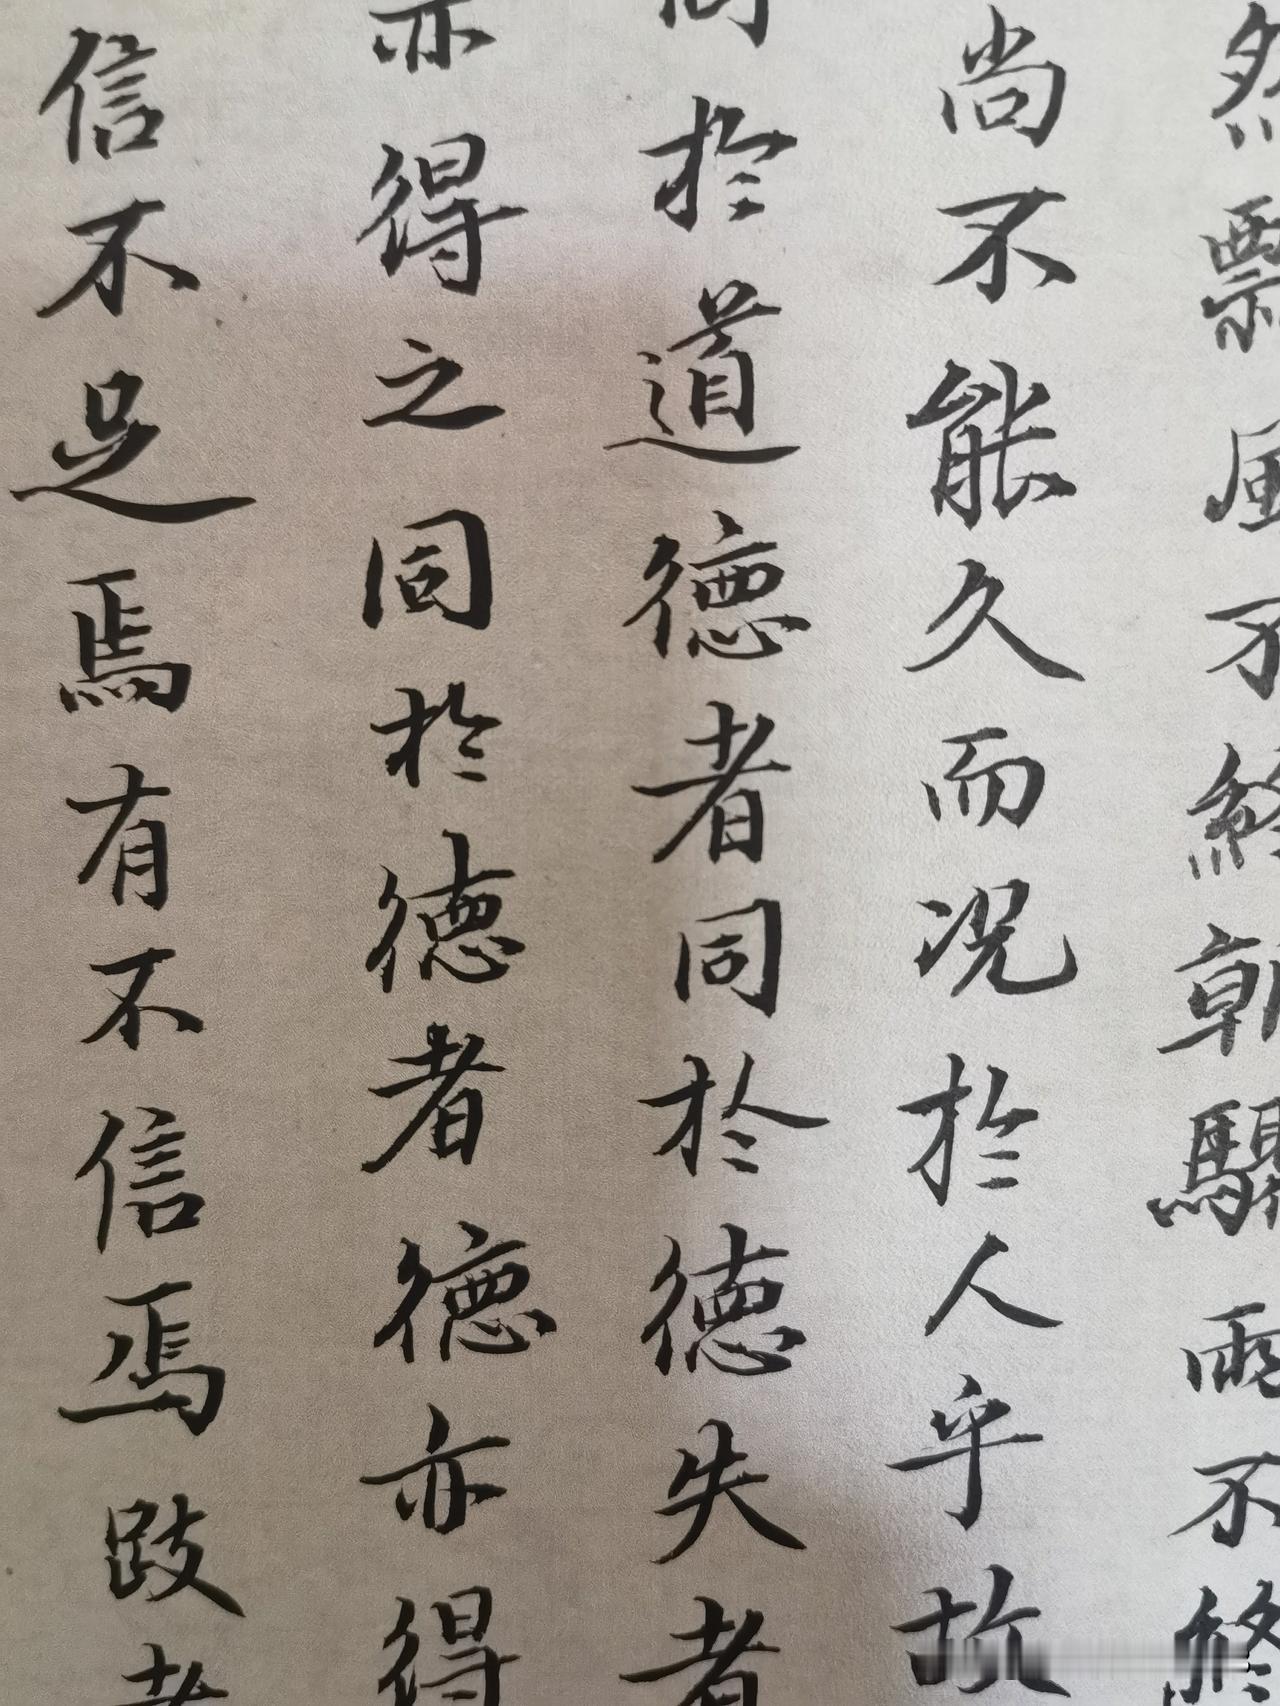 然飄風不終朝驟雨不終
尚不能久而況於人乎故
同於道德者同於德失者
亦得之同於德者德亦得
信不足焉有不信焉跂者